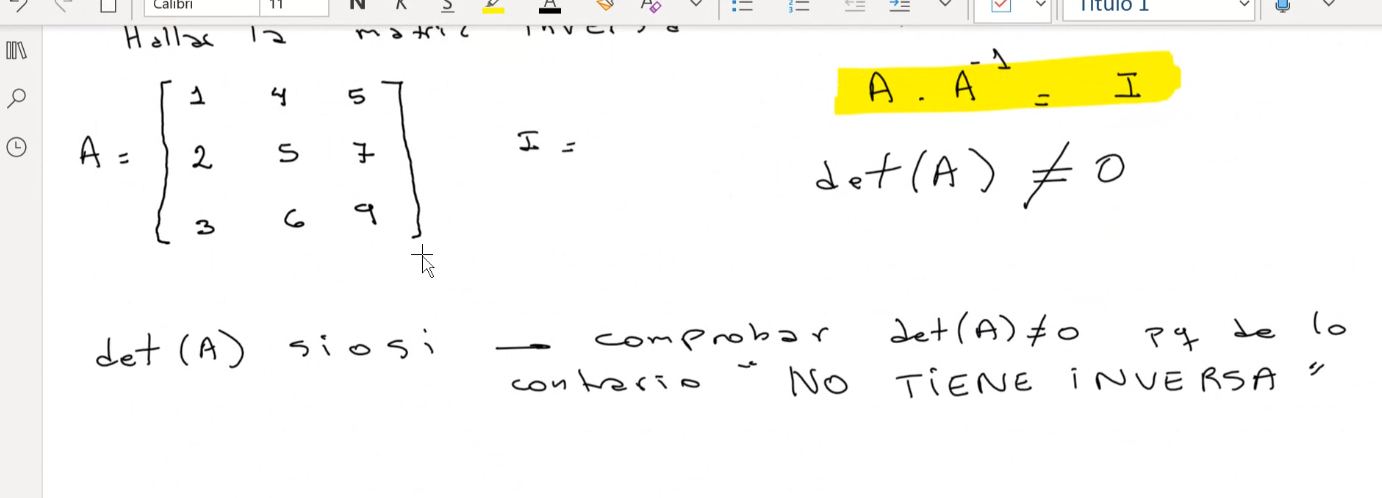 Calibri 11 N K S A Título 1
Hallar la matriz inversa
A . A⁻¹ = I
A = [ 1 4 5
2 5 7
3 6 9 ]
I =
det(A) ≠ 0
det(A) siosi — comprobar det(A)≠0 pq de lo
contrario " NO TiENE iNVERSA "